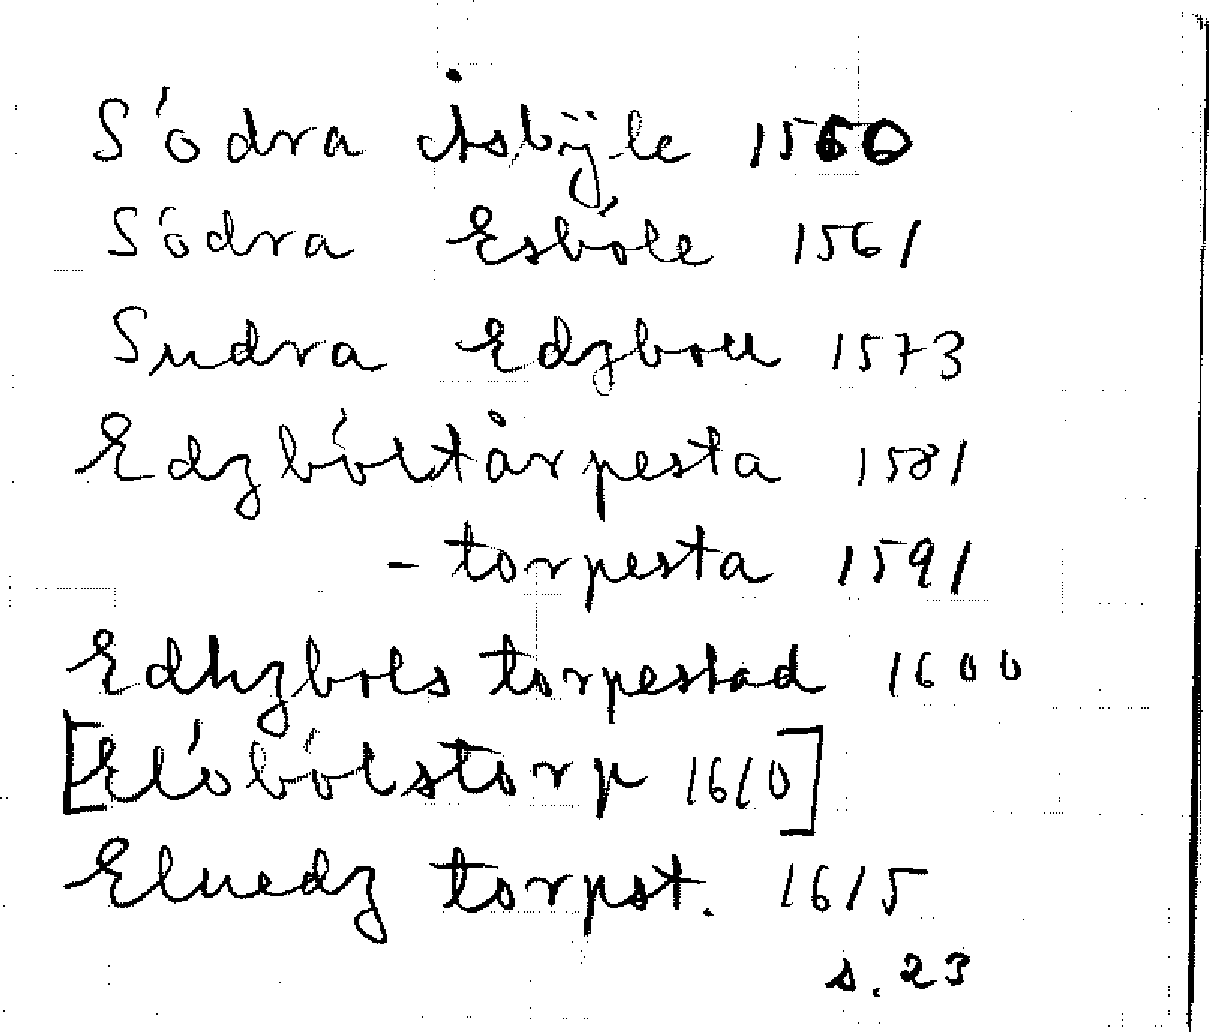 Södra Åsbÿle 1560
Södra Esböle 1561
Sudra Edzboll 1573
Edzböltårpesta 1581
- torpesta 1591
Edhzbols torpestad 1600
[Elöbölstorp 1610]
Eluedz torpst. 1615
s. 23